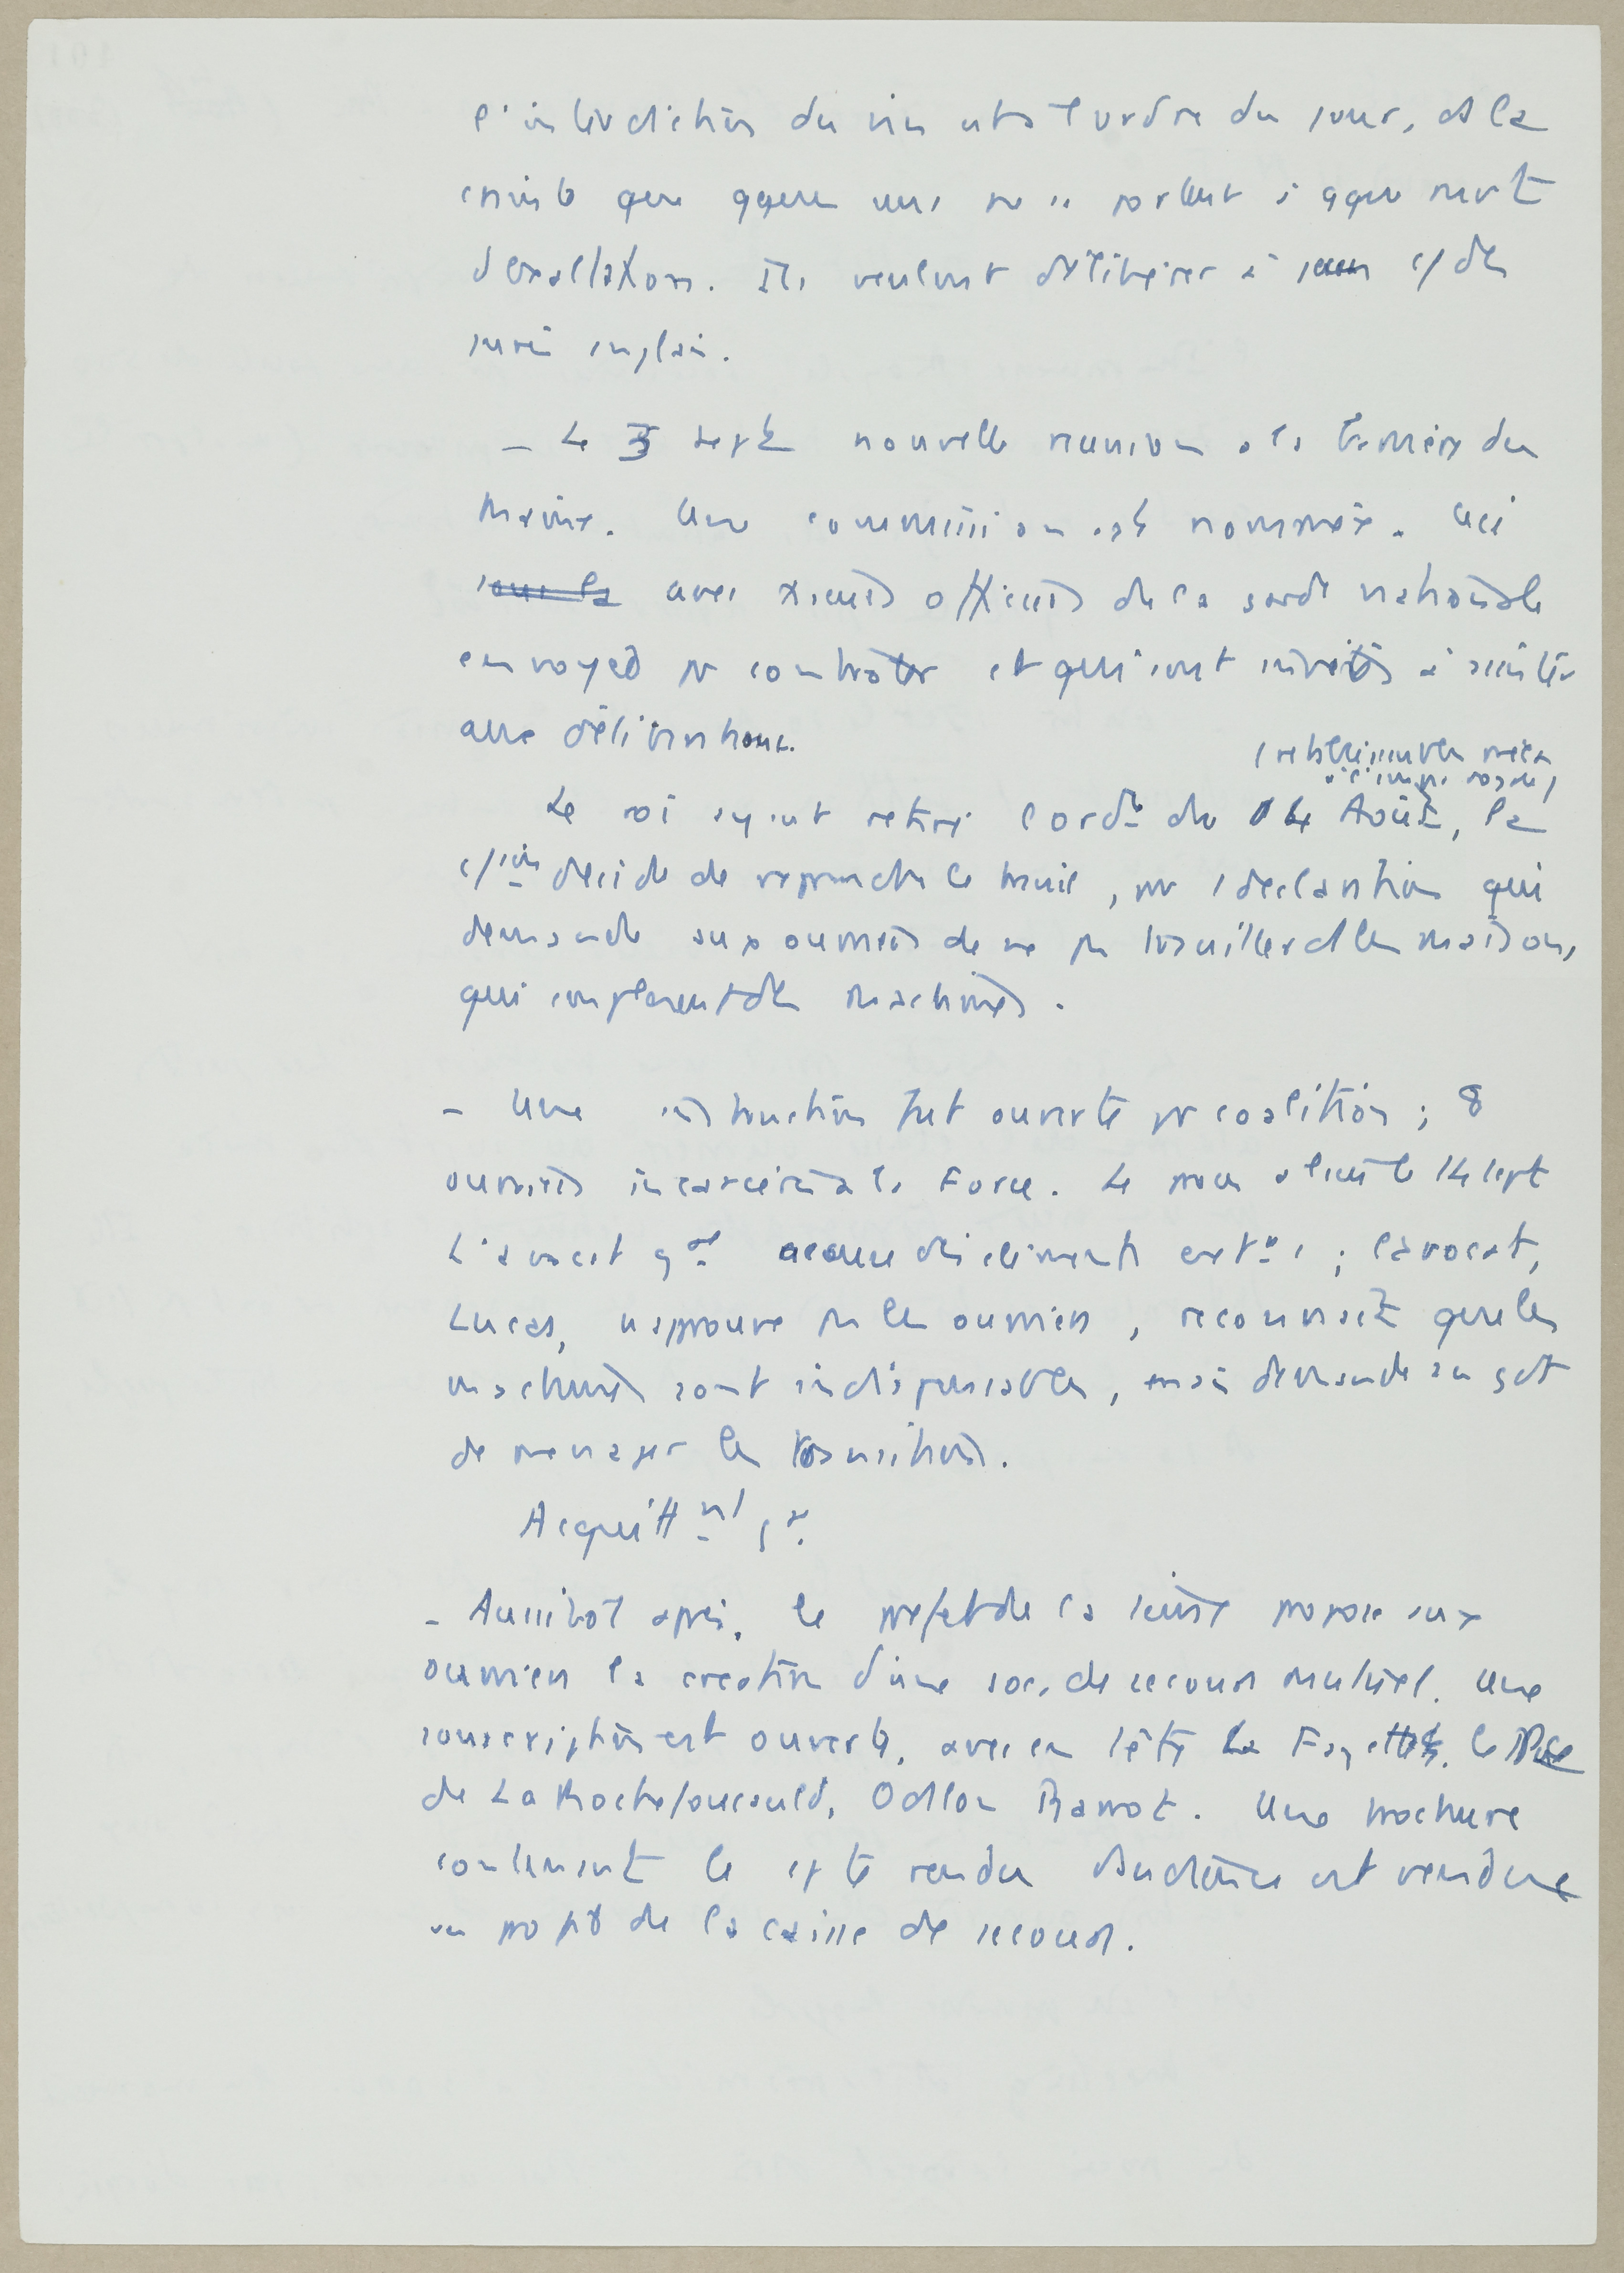 l'interdiction du vin est à l'ordre du jour, ds la
crainte que qques uns ne se portent à qque sorte
d'exaltation. Ils veulent délibérer à jeun c/ des
jurés anglais.
– Le 3 sept nouvelle réunion à la barrière du
Maine. Une commission est nommée. Uci
sous la avec officiers de la garde nationale
envoyés pr contrôler et qui sont invités à assister
aux délibérations.
(rétablissement
Le roi ayant retiré l'ordce du Août, la
c/ion décide de reprendre le travail, par 1 déclaration qui
demande aux ouvriers de ne pas travailler ds les maisons,
qui emploient des machines.
– Une instruction fut ouverte pr coalition ; 8
ouvriers incarcérés à la Force. Le procès a lieu le 14 sept
L'avocat gal accuse des éléments extrs ; l'avocat,
Lucas, n'approuve pas les ouvriers, reconnaît que les
machines sont indispensables, mais demande au gvt
de ménager les transitions.
Acquittmt gal.
– Aussitôt après, le préfet de la Seine propose aux
ouvriers la création d'une soc. de secours mutuel. Une
souscription est ouverte, avec en tête La Fayette, le Duc
de La Rochefoucauld, Odilon Barrot. Une brochure
contenant le c/te rendu d'audience est vendue
au profit de la caisse de secours.